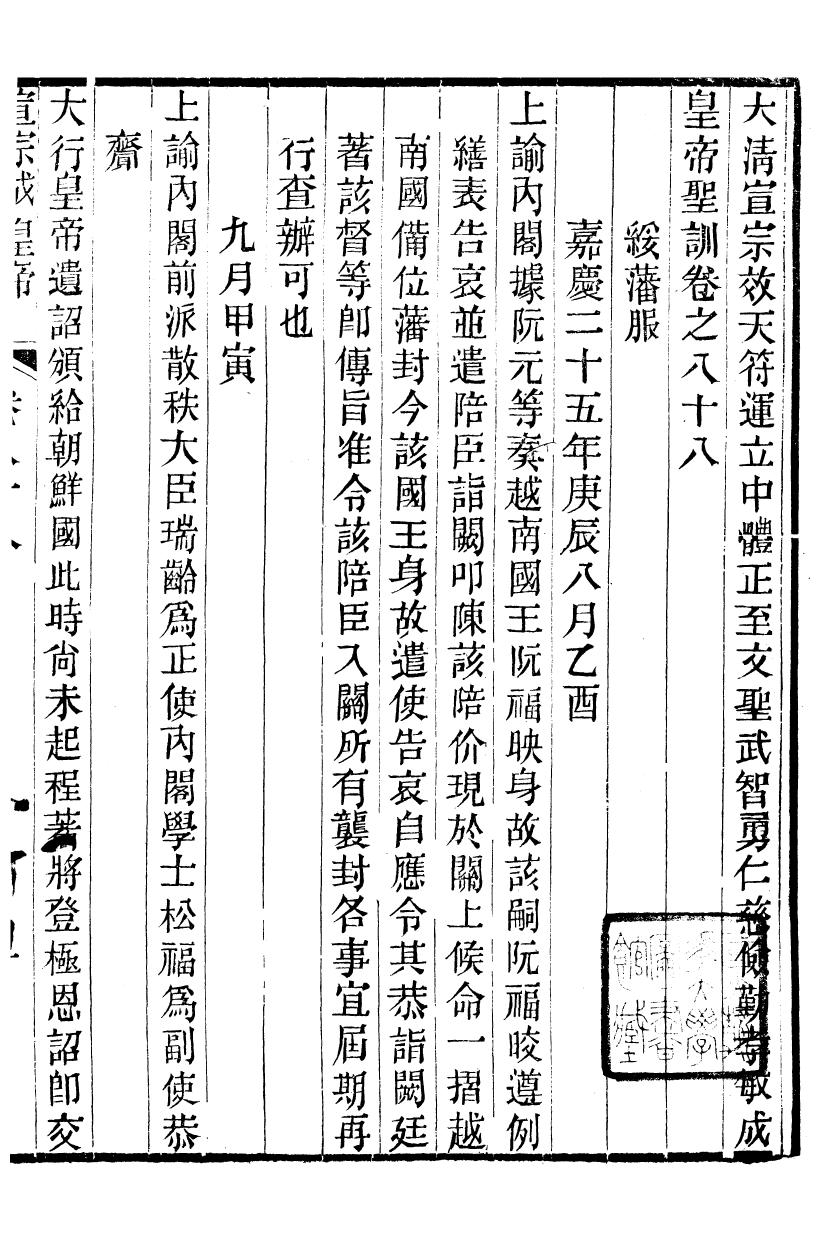 大清宣宗效天符運立中體正至文聖武智勇仁慈儉勤孝敏成
皇帝聖訓卷之八十八
綏藩服
嘉慶二十五年庚辰八月乙酉
上諭內閣據阮元等奏越南國王阮福映身故該嗣阮福晈遵例
繕表告哀並遣陪臣詣闕叩陳該陪价現於關上候命一摺越
南國備位藩封今該國王身故遣使告哀自應令其恭詣闕廷
著該督等卽傳旨准令該陪臣入關所有襲封各事宜屆期再
行查辦可也
九月甲寅
上諭內閣前派散秩大臣瑞齡爲正使內閣學士松福爲副使恭
齎
大行皇帝遺詔頒給朝鮮國此時尙未起程著將登極恩詔卽交
宣宗成皇帝